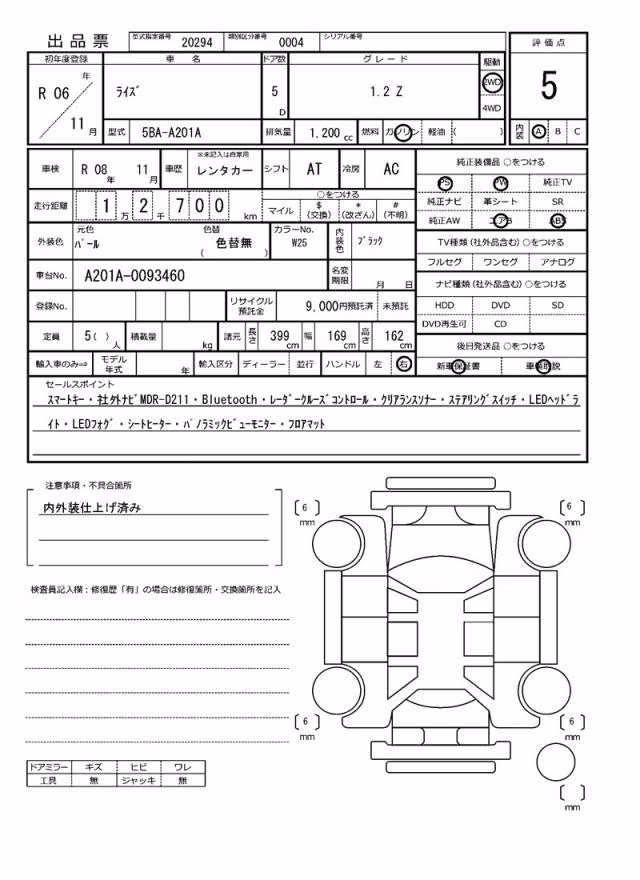 出品票 型式指定番号 20294 類別区分番号 0004 シリアル番号
初年度登録 車名 ドア数 グレード 駆動 評価点
R 06 年 ライズ 5 D 1.2 Z 2WD 4WD 5
11 月 型式 5BA-A201A 排気量 1.200 cc 燃料 ガソリン 軽油 ( ) 内装 A B C
車検 R 08 年 11 月 車歴 ※未記入は自家用 レンタカー シフト AT 冷房 AC 純正装備品 ○をつける
PS PW 純正TV
走行距離 1 万 2 千 7 0 0 km ○をつける
マイル $ (交換) * (改ざん) # (不明) 純正ナビ 革シート SR
純正AW エアB ABS
外装色 元色 パール 色替 色替無 ( ) カラーNo. W25 内装色 ブラック TV種類 (社外品含む) ○をつける
フルセグ ワンセグ アナログ
車台No. A201A-0093460 名変期限 月 日 ナビ種類 (社外品含む) ○をつける
登録No. リサイクル預託金 9,000円預託済 未預託 HDD DVD SD
DVD再生可 CD
定員 5 ( ) 人 積載量 kg 諸元 長さ 399 cm 幅 169 cm 高さ 162 cm 後日発送品 ○をつける
輸入車のみ⇒ モデル年式 年 輸入区分 ディーラー 並行 ハンドル 左 右 新車保証書 車輌取説
セールスポイント
スマートキー・社外ナビMDR-D211・Bluetooth・レーダークルーズコントロール・クリアランスソナー・ステアリングスイッチ・LEDヘッドラ
イト・LEDフォグ・シートヒーター・パノラミックビューモニター・フロアマット
注意事項・不具合箇所
内外装仕上げ済み
〔 6 〕 mm 〔 6 〕 mm
検査員記入欄:修復歴「有」の場合は修復箇所・交換箇所を記入
〔 6 〕 mm 〔 6 〕 mm
ドアミラー キズ ヒビ ワレ
工具 無 ジャッキ 無
〔 〕 mm